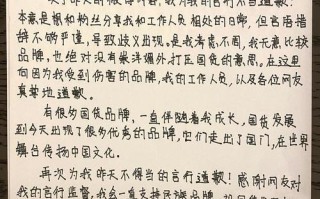 本意是跟和粉丝分享我和工作人员相处的日常,但言语措
辞不够严谨,导致歧义出现。是我考虑不周,我无意比较
品牌,也绝对没有崇洋媚外打压国货的意思。在这里
向因为我受到伤害的品牌,我的工作人员,以及各位网友
真挚地道歉。
有很多国货品牌,一直伴随着我成长,国货发展
到今天出现了很多优秀的品牌,它们走出了国门,在世界
舞台传扬中国文化。
再次为我昨天不得当的言行道歉!感谢网友对
我的言行监督,我会一直支持民族品牌